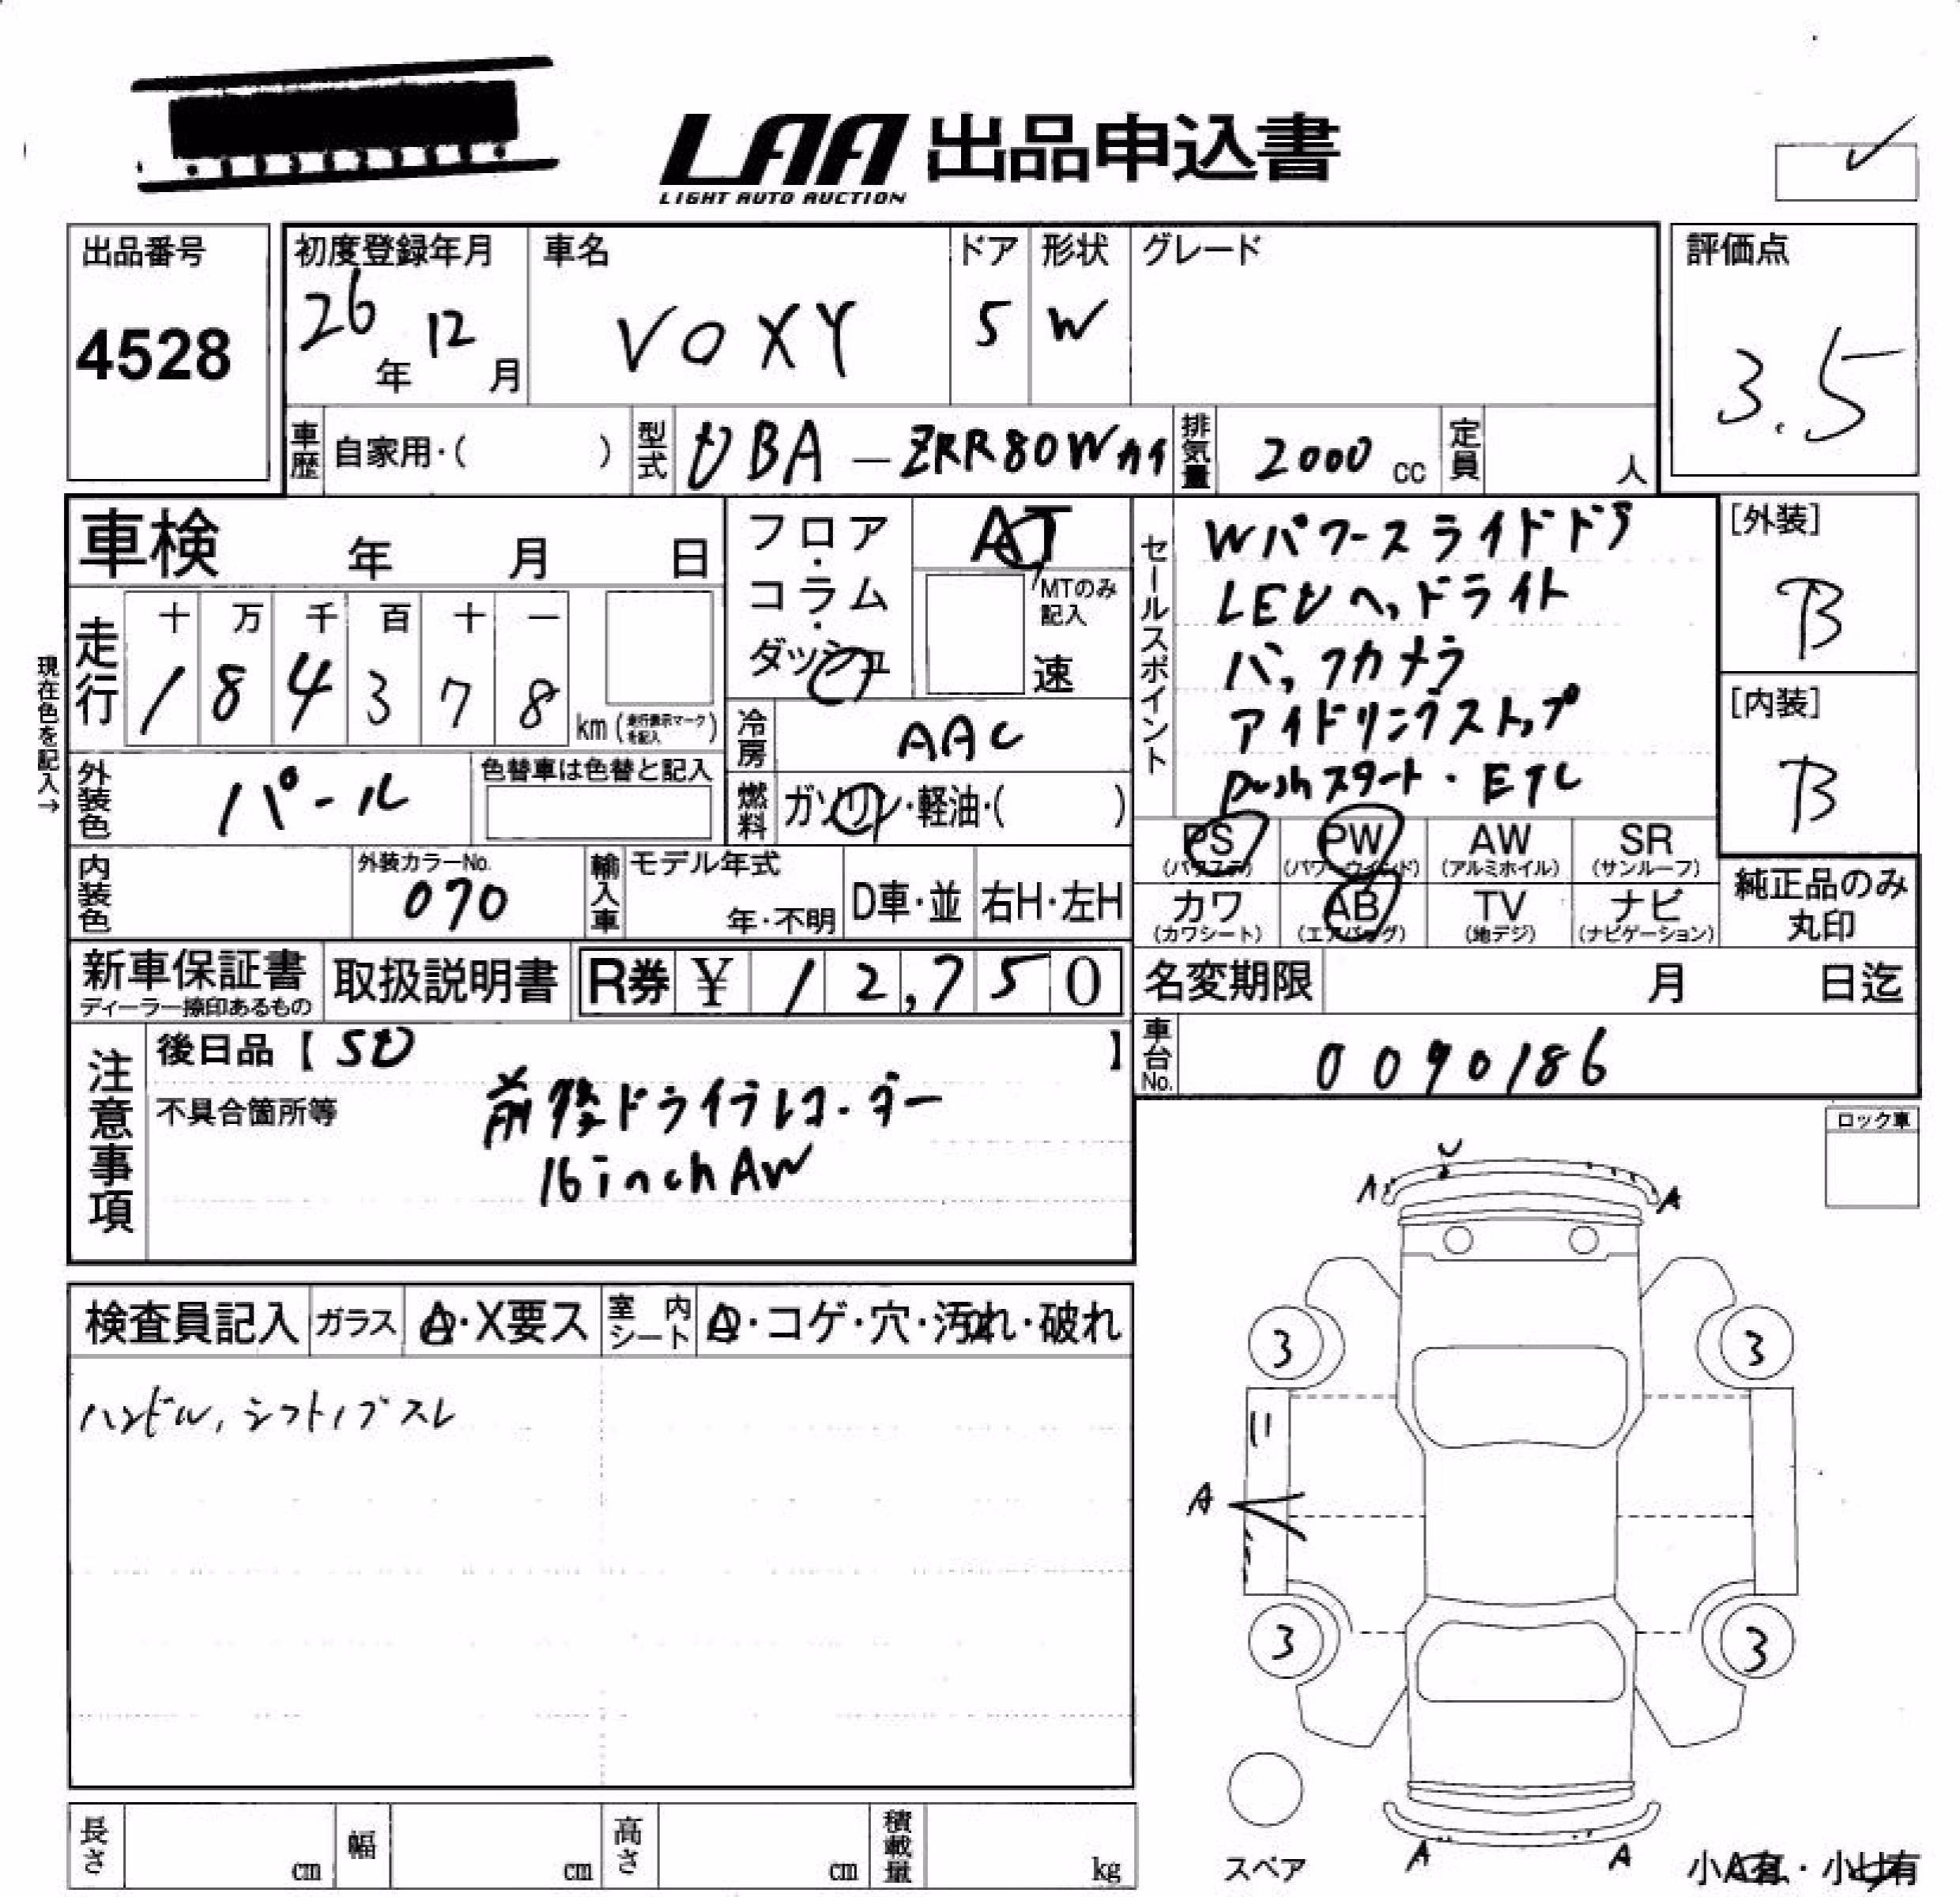 LAA 出品申込書
LIGHT AUTO AUCTION
出品番号
4528
初度登録年月
26年 12月
車名
VOXY
ドア
5
形状
W
グレード
評価点
3.5
車歴 自家用・( )
型式 DBA-ZRR80Wカイ
排気量 2000 cc
定員 人
車検 年 月 日
フロア・コラム・ダッシュ
AT
MTのみ記入
速
セールスポイント
Wパワースライドドア
LEDヘッドライト
バックカメラ
アイドリングストップ
Pushスタート・ETC
[外装]
B
[内装]
B
現在色を記入→
走行
十 万 千 百 十 一
1 8 4 3 7 8
km (走行表示マークを記入)
冷房 AAC
外装色 パール
色替車は色替と記入
燃料 ガソリン・軽油・( )
PS (パワステ)
PW (パワーウインド)
AW (アルミホイル)
SR (サンルーフ)
カワ (カワシート)
AB (エアバッグ)
TV (地デジ)
ナビ (ナビゲーション)
純正品のみ丸印
内装色
外装カラーNo.
070
輸入車 モデル年式
年・不明
D車・並
右H・左H
新車保証書
ディーラー捺印あるもの
取扱説明書
R券 ¥ 12,750
名変期限 月 日迄
注意事項
後日品【SD】
不具合箇所等
前後ドライブレコーダー
16inchAW
車台No. 0090186
ロック車
検査員記入
ガラス A・X要ス
室内シート A・コゲ・穴・汚れ・破れ
ハンドル,シフトノブスレ
U
A A
3 3
A
3 3
スペア
A A
小A有・小U有
長さ cm
幅 cm
高さ cm
積載量 kg